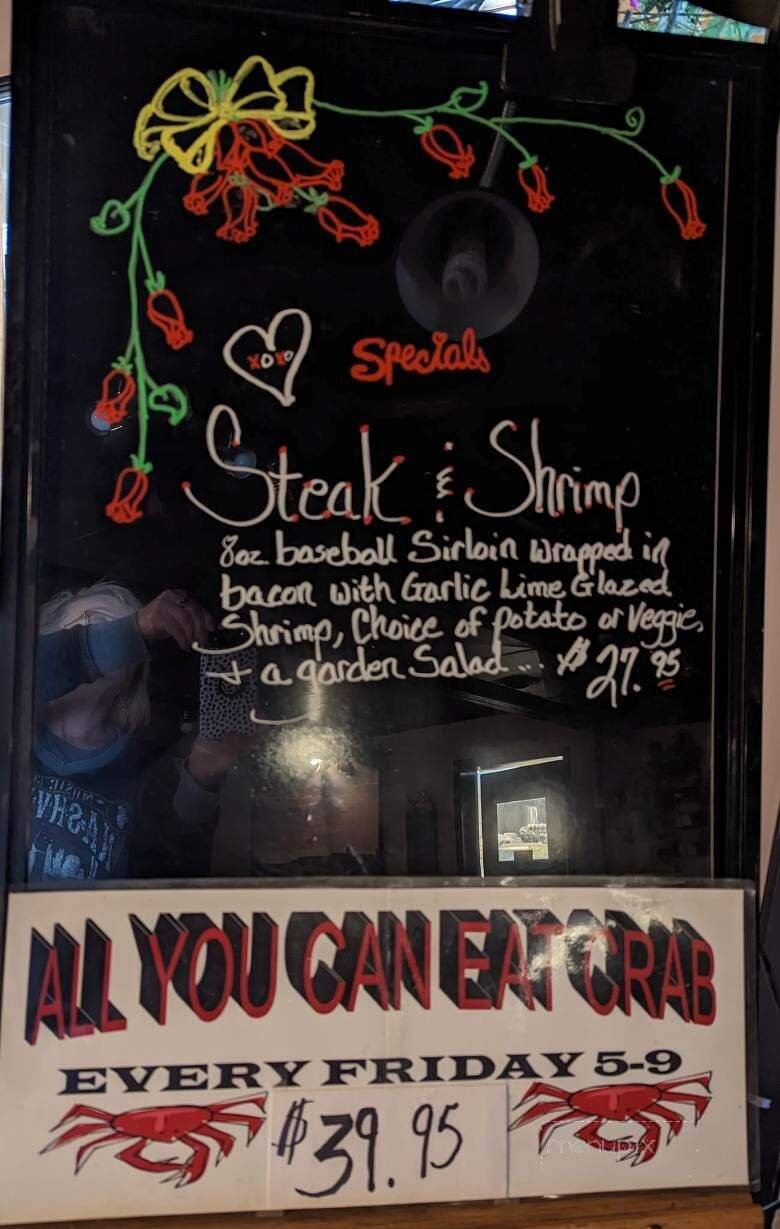 XOXO Specials
Steak & Shrimp
8oz baseball Sirloin wrapped in
bacon with Garlic Lime Glazed
Shrimp, Choice of potato or Veggie,
+ a garden Salad... $27.95
ALL YOU CAN EAT CRAB
EVERY FRIDAY 5-9
$39.95
menupix